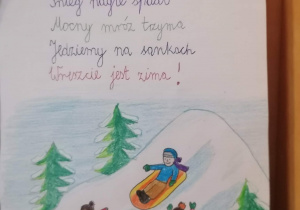 Śnieg nagle spadł
Mocny mróz trzyma
Jedziemy na sankach
Wreszcie jest zima!